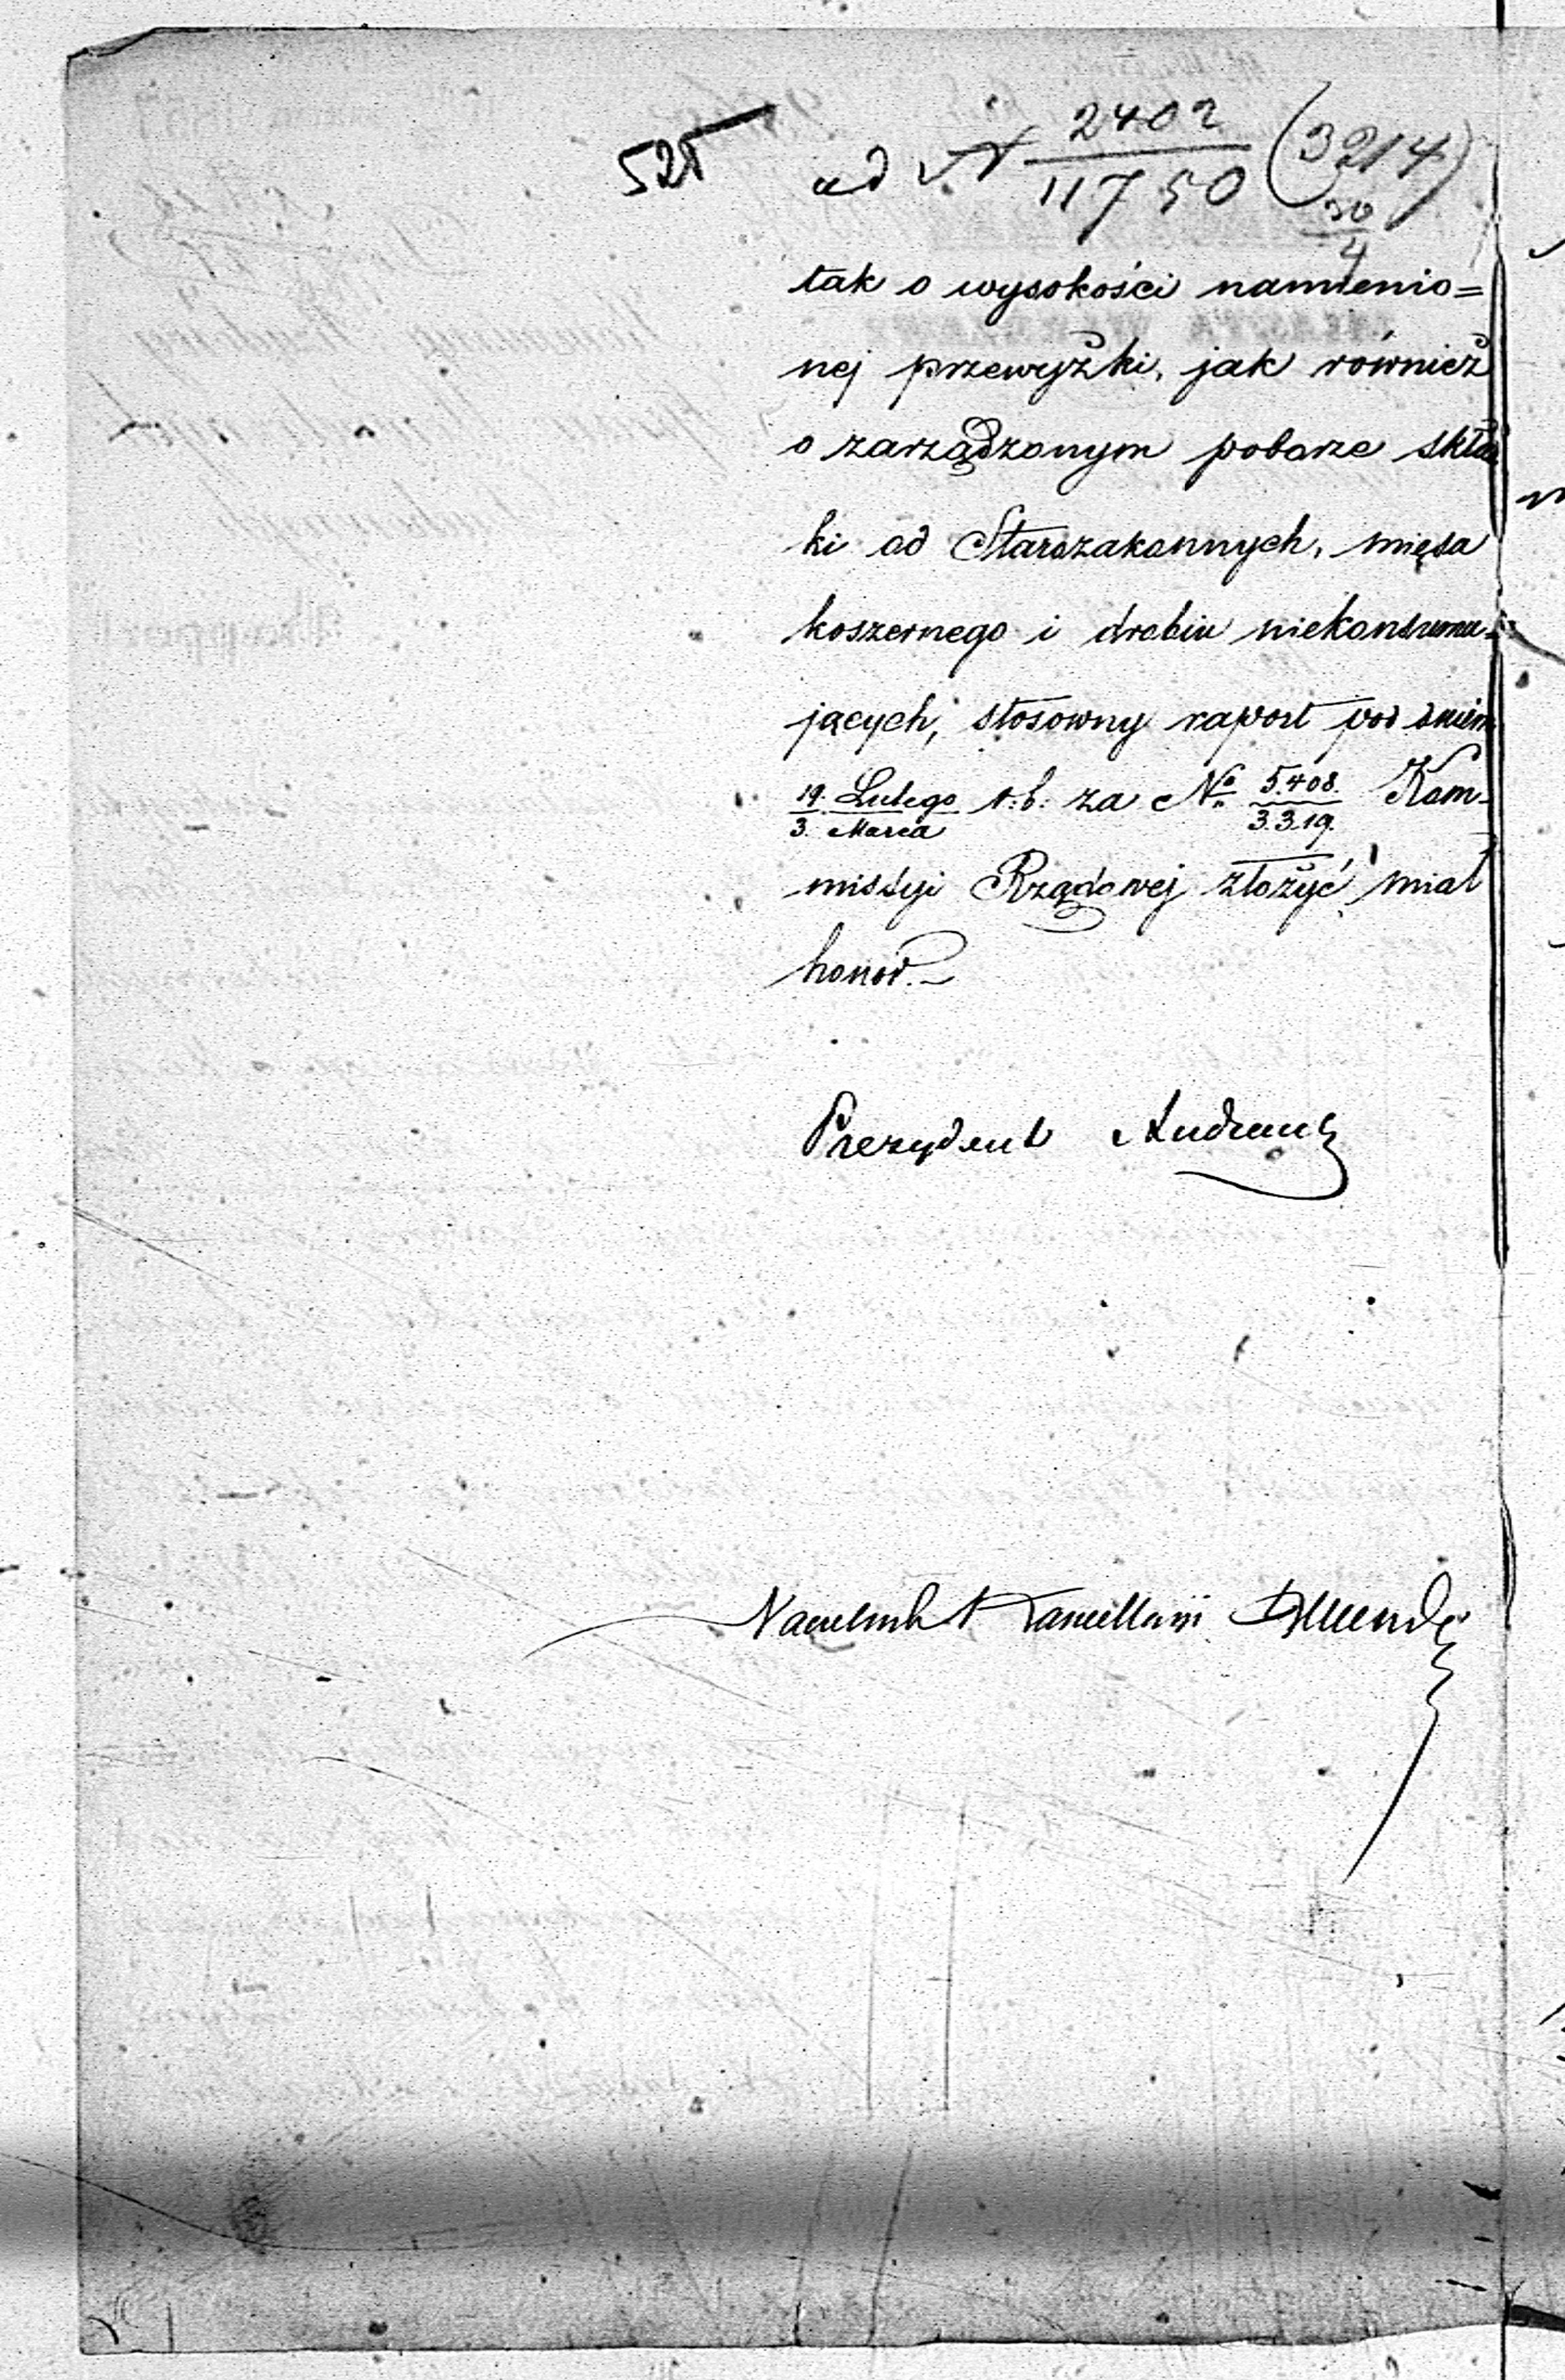 525
ad N 2402/11750 (3214)
30/4
tak o wysokości namienio=
nej przewyżki, jak również
o zarządzonym poborze skład
ki od Starozakonnych, mięsa
koszernego i drobiu niekonsumu-
jących, stosowny raport pod dniem
19. Lutego/3. Marca t: b: za No 5.408./3.319. Kom-
missyi Rządowej złożyć miał
honor.–
Prezydent Andrault
Naczelnik Kancellaryi